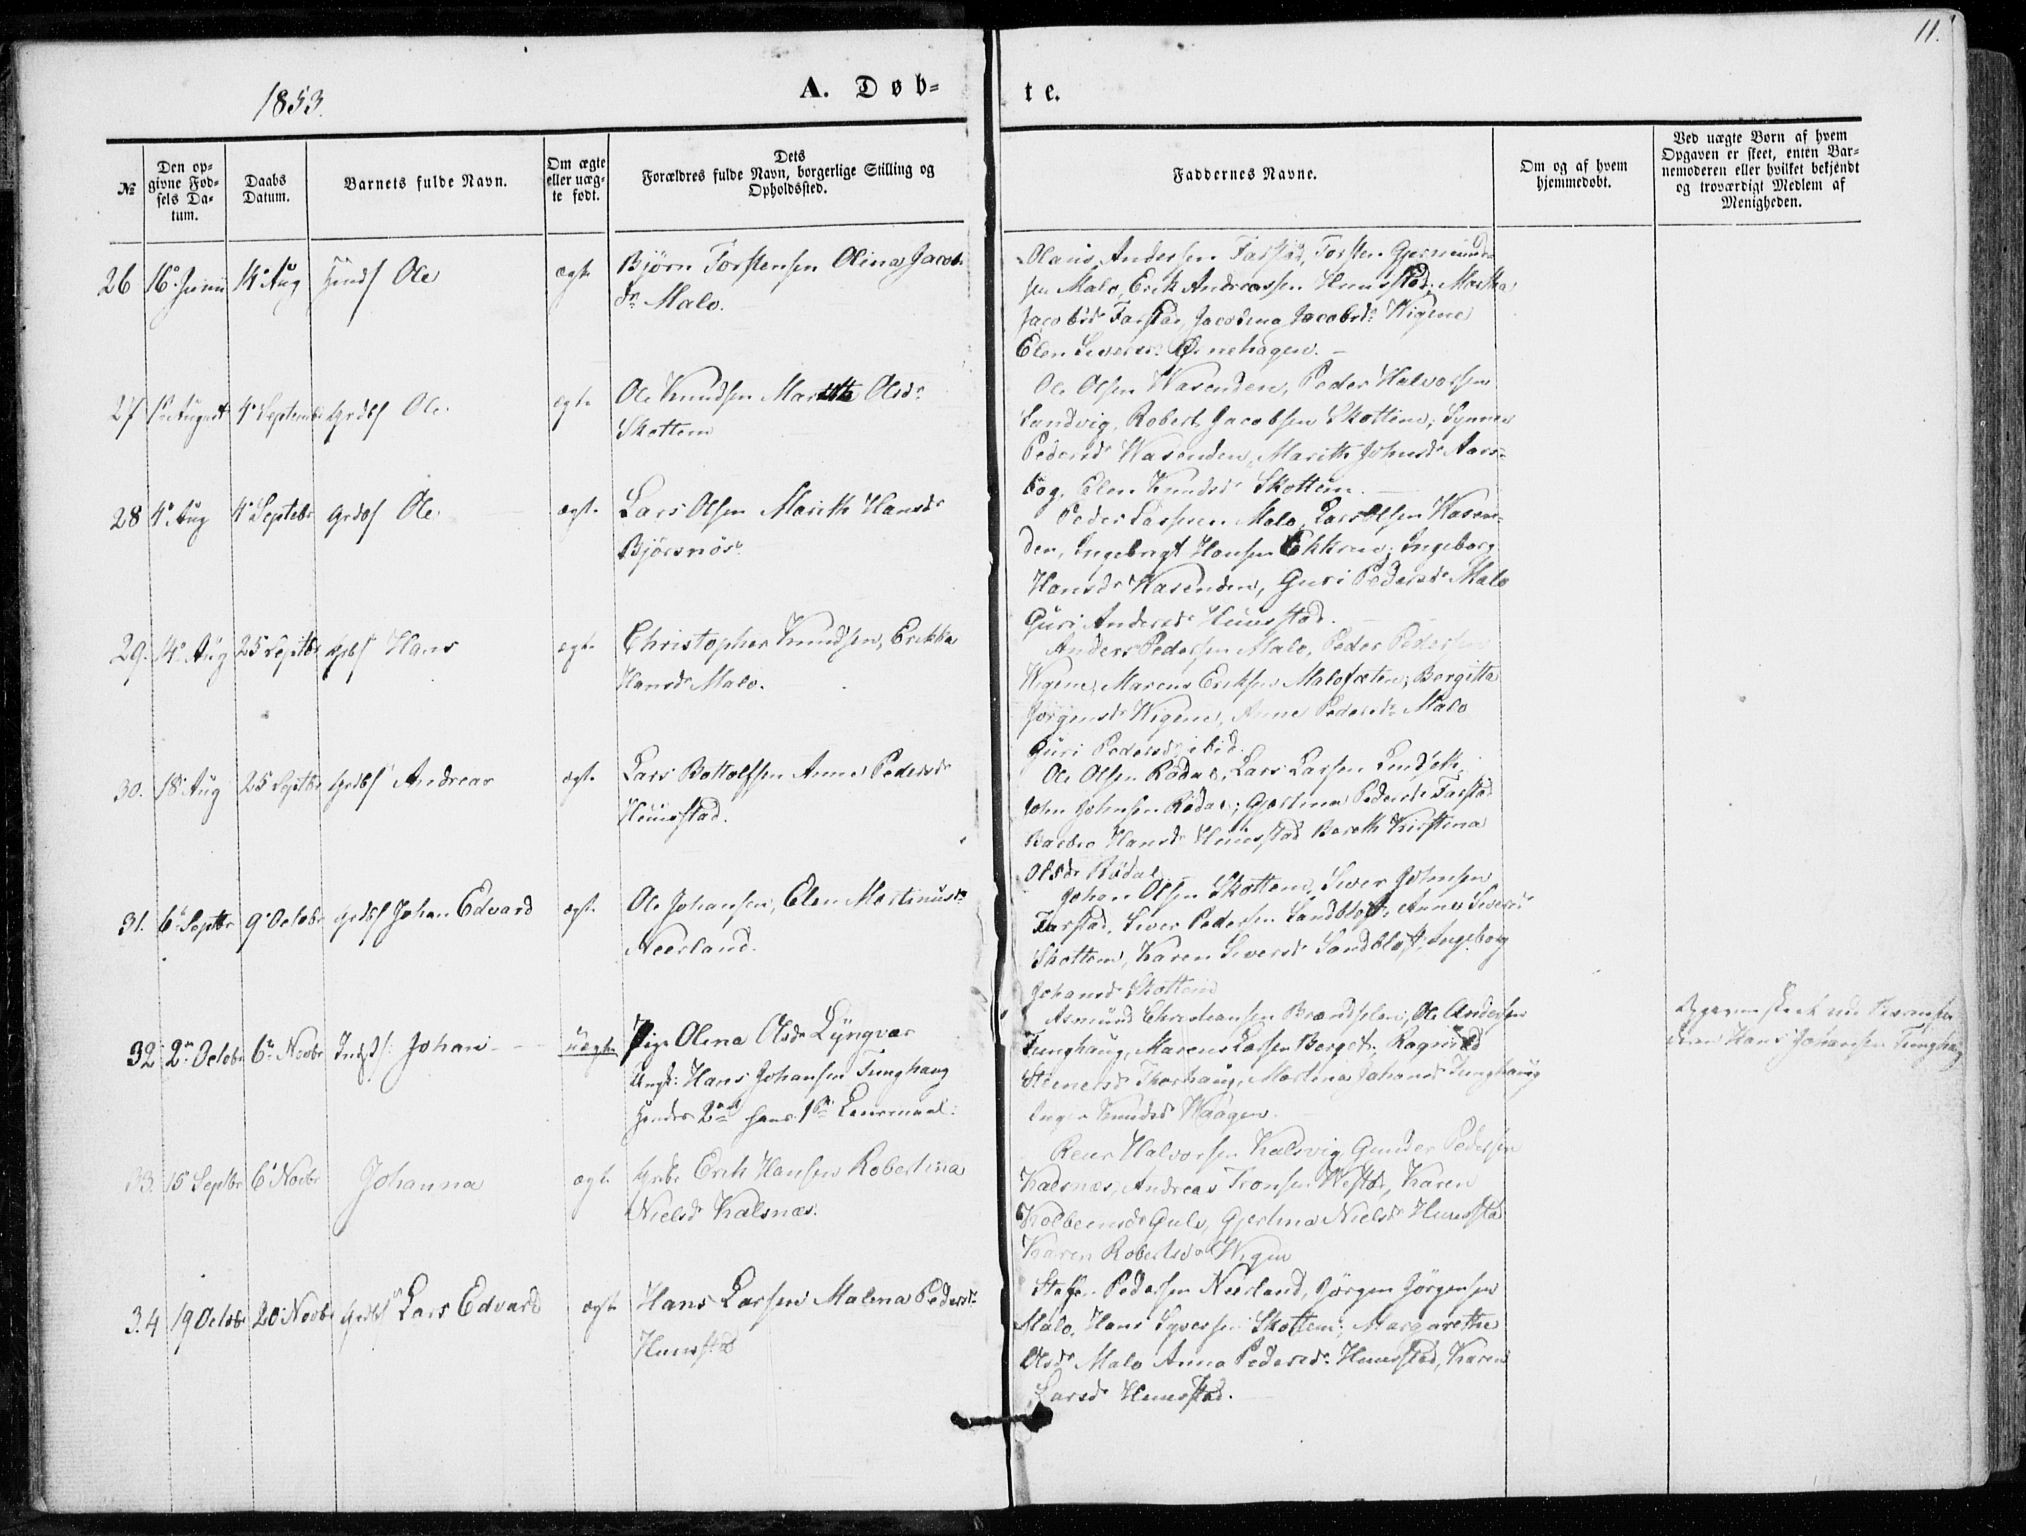 11.
1853.
A. Døb-
te.
№
Den op-
givne Fød-
sels Da-
tum.
Daabs
Datum.
Barnets fulde Navn.
Om ægte
eller uæg-
te født.
Dets
Forældres fulde Navn, borgerlige Stilling og
Opholdssted.
Faddernes Navne.
Om og af hvem
hjemmedøbt.
Ved uægte Børn af hvem
Opgaven er skeet, enten Bar-
nemoderen eller hvilket bekjendt
og troværdigt Medlem af
Menigheden.
26 16 Juni 14 Aug Ole ægte Bjørn Torstensen Olina Jacobs
dr Malo.
Olaus Andersen Farstad, Torsten Gjermunds
sen Malo, Erik Andreassen Hunsstad, Martha
Jacobsdr Farstad, Jacobina Jacobsdr Wigene
Elen Siversdr Ørnehagen.
27 August 4 September Ole ægte Ole Knudsen Marith Olsdr
Skottem
Ole Olsen Wasenden, Peder Halvorsen
Sandvig, Robert Jacobsen Skottem, Synnev
Pedersdr Wasenden, Marith Johnsdr Aars-
bog, Elen Knudsdr Skottem.
28 4 Aug 4 Septebr Ole ægte Lars Olsen Marith Hansdr
Bjørsnøs
Peder Malo, Lars Olsen Wasen-
den, Ingebrigt Hansen Ekkren, Ingeborg
Hansdr Wasenden, Guri Pedersdr Malo
Guri Andersdr Hunsstad.
29. 14 Aug 25 Septbr Hans ægte Christopher Knudsen, Erikka
Hansdr Malo.
Anders Pedersen Malo, Peder Pedersen
Wigene, Marcus Eriksen Malosæten, Borgitta
Jørgensdr Wigene, Anne Pedersdr Malo
Guri Pedersdr ibid.
30. 18 Aug 25 Septbr Andreas ægte Lars Bottolfsen Anne Pedersdr
Hunsstad.
Ole Olsen Rødal, Lars Larsen
John Johnsen Rødal, Gjertina Pedersdr Farstad
Barbro Hansdr Hunsstad Bereth Kirstina
Olsdr Rødal
31. 6 Septbr 9 Octobr Johan Edvard ægte Ole Johansen, Elen Martinusdr
Neerland.
Johan Olsen Skottem, Siver Johnsen
Farstad, Siver Pedersen Sandbløst, Anne Siversdr
Skottem, Karen Siversdr Sandbløst, Ingeborg
Johansdr Skottem
32 2 Octobr 6 Novbr Johan uægte Pige Olena Olsdr Lyngvær
Ungk: Hans Johansen Tunghaug
Hendes 2det hans 1ste Leiermaal.
Asmund Christiansen Ole Andersen
Tunghaug, Marcus Larsen Berget, Ragnild
Thorhaug, Martina Johansdr Tunghaug
Inger Knudsdr Haagen.
Opgaven skeet ved
Hans Johansen Tunghaug
33. 15 Septbr 6 Novbr Johanna ægte Grbr Erik Hansen Robertina
Nielsdr Kalsnæs.
Halvorsen Kalsvig Gunder Pedersen
Kalsnæs, Andreas Tronsen Karen
Kolbeensdr Gule, Gjertina Nielsdr Hunsstad
Karen Robertsdr Wigen
34 19 Octobr 20 Novbr Lars Edvard ægte Hans Larsen Malena Pedersdr
Hunsstad
Steffen Pedersen Neerland, Jørgen Jørgensen
Malo, Hans Syversen Skottem, Margarethe
Olsdr Malo Anna Pedersdr Hunsstad, Karen
Larsdr Hunsstad.